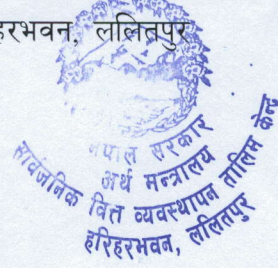 हरभवन, ललितपुर
नेपाल सरकार
अर्थ मन्त्रालय
सार्वजनिक वित्त व्यवस्थापन तालिम केन्द्र
हरिहरभवन, ललितपुर